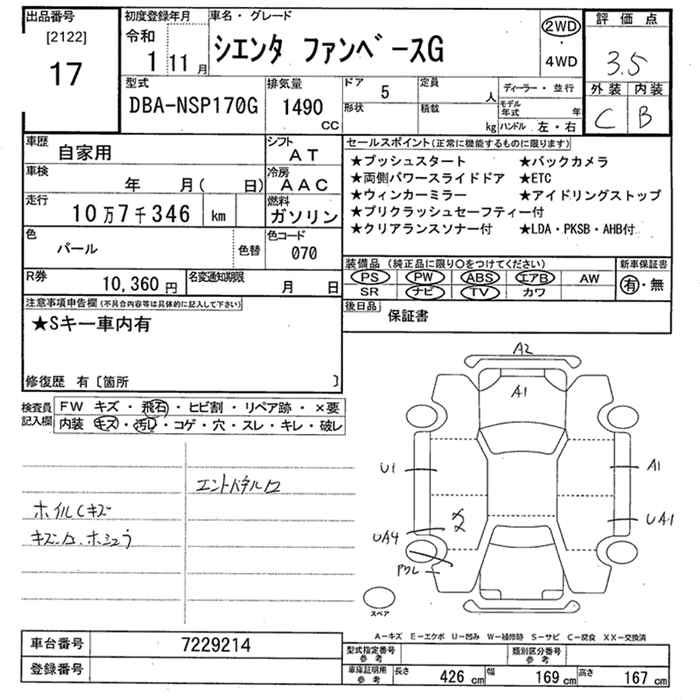 出品番号
[2122]
17
初度登録年月
令和
1 11月
車名・グレード
シエンタ ファンベースG
2WD
・
4WD
評価点
3.5
外装 内装
C B
型式
DBA-NSP170G
排気量
1490
CC
ドア 5
形状
定員 人
積載 kg
ディーラー・並行
モデル年式 年
ハンドル 左・右
車歴
自家用
シフト
AT
車検
年 月( 日)
冷房
AAC
走行
10万7千346 km
燃料
ガソリン
色
パール
色替
色コード
070
R券
10,360円
名変通知期限
月 日
セールスポイント(正常に機能するものに限ります)
★プッシュスタート ★バックカメラ
★両側パワースライドドア ★ETC
★ウィンカーミラー ★アイドリングストップ
★プリクラッシュセーフティー付
★クリアランスソナー付 ★LDA・PKSB・AHB付
装備品 (純正品に限り○をつけてください)
PS PW ABS エアB AW
SR ナビ TV カワ
新車保証書
有・無
後日品
保証書
注意事項申告欄(不具合内容等は具体的に記入して下さい)
★Sキー車内有
修復歴 有〔箇所 〕
検査員記入欄
FW キズ・飛石・ヒビ割・リペア跡・×要
内装 キズ・汚レ・コゲ・穴・スレ・キレ・破レ
ホイルCキズ
A2
A1
U1
A1
UA4
UA1
スペア
A-キズ E-エクボ U-凹み W-補修跡 S-サビ C-腐食 XX-交換済
車台番号 7229214
登録番号
型式指定番号
参考
類別区分番号
参考
車庫証明所
参考
長さ 426 cm 幅 169 cm 高さ 167 cm